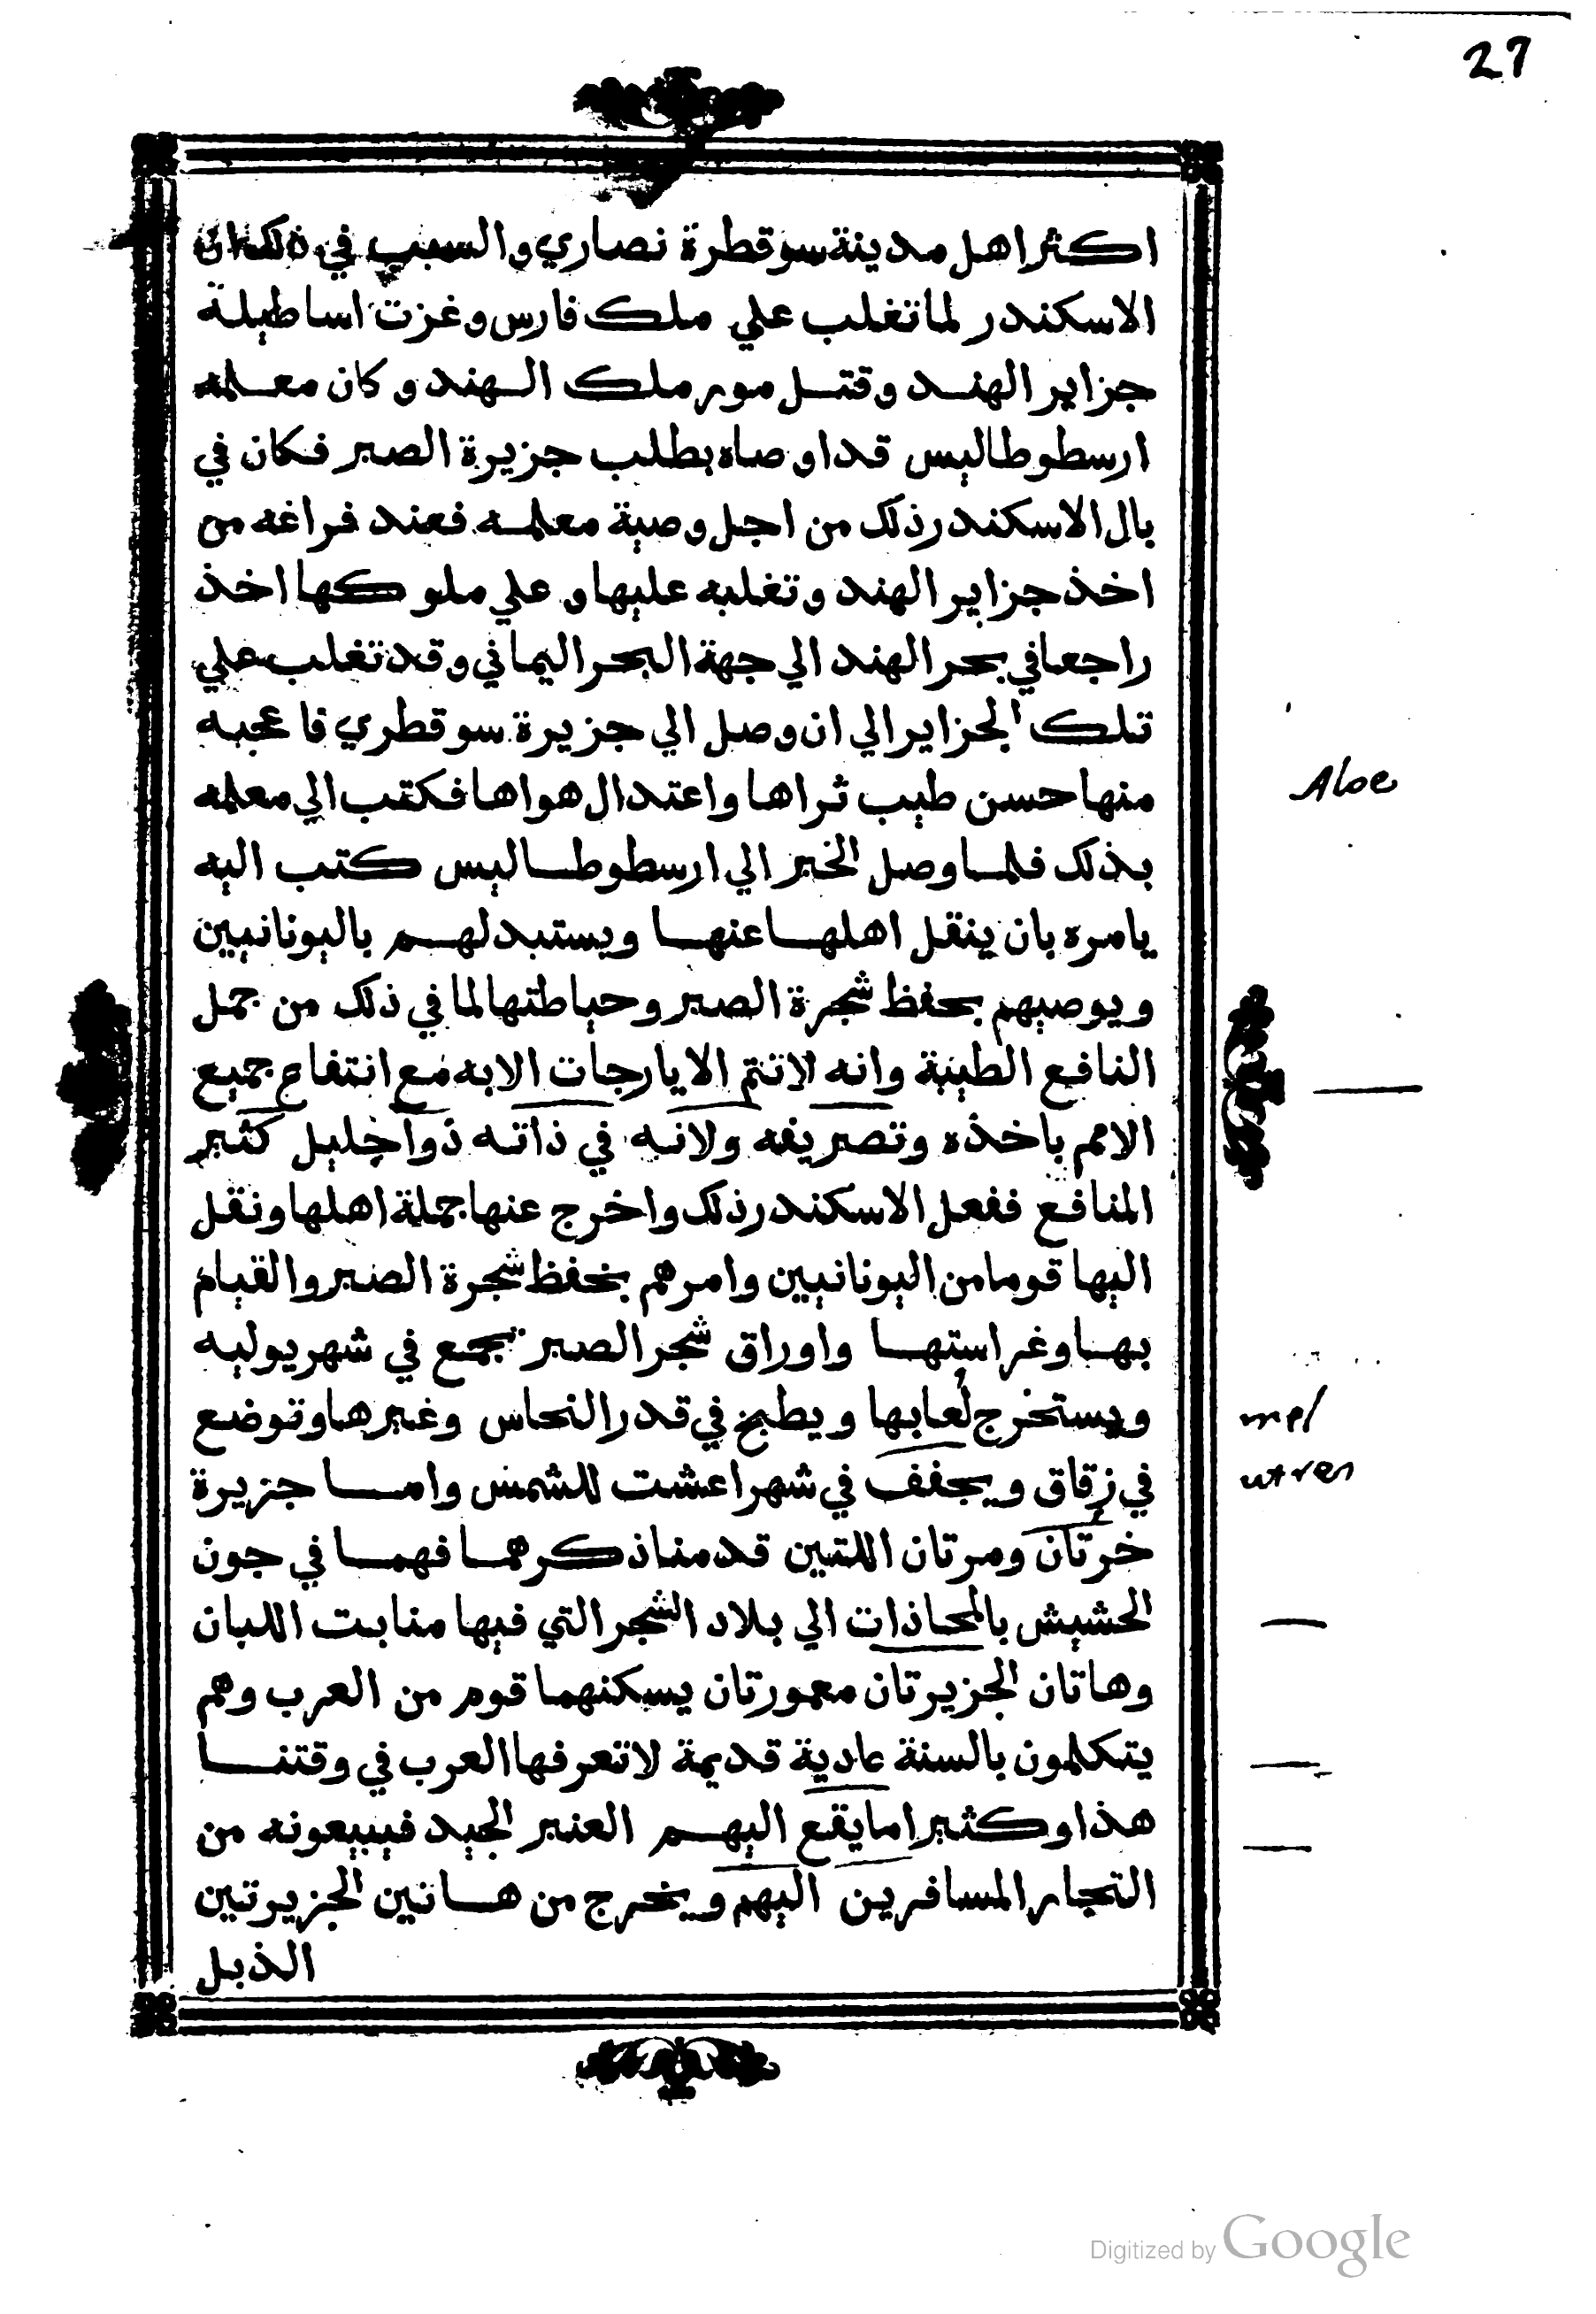 27
اكثر اهل مدينة سوقطرة نصاري والسبب في ذلك ان
الاسكندر لما تغلب علي ملك فارس وغزت اساطيله
جزاير الهند وقتل مور ملك الهند وكان معلمه
ارسطوطاليس قد اوصاه بطلب جزيرة الصبر فكان في
بال الاسكندر ذلك من اجل وصية معلمه فعند فراغه من
اخذ جزاير الهند وتغلبه عليها وعلي ملوكها اخذ
راجعا في بحر الهند الي جهة البحر اليماني وقد تغلب علي
تلك الجزاير الي ان وصل الي جزيرة سوقطري فاعجبه
منها حسن طيب ثراها واعتدال هواها فكتب الي معلمه
Aloe
بذلك فلما وصل الخبر الي ارسطوطاليس كتب اليه
يامره بان ينقل اهلها عنها ويستبدلهم باليونانيين
ويوصيهم بحفظ شجرة الصبر وحياطتها لما في ذلك من جمل
النافع الطينة وانه لا تتم الايارجات الا به مع انتفاع جميع
الامم باخذه وتصريفه ولانه في ذاته ذوا جليل كثير
المنافع ففعل الاسكندر ذلك واخرج عنها جملة اهلها ونقل
اليها قوما من اليونانيين وامرهم بحفظ شجرة الصبر والقيام
بها وغراستها واوراق شجر الصبر تجمع في شهر يوليه
ويستخرج لعابها ويطبخ في قدر النحاس وغيرها وتوضع
mel
في زقاق ويجفف في شهر اعشت للشمس واما جزيرة
utren
خرتان ومرتان اللتين قدمنا ذكرهما فهما في جون
الحشيش بالمحاذات الي بلاد الشجر التي فيها منابت اللبان
وهاتان الجزيرتان معمورتان يسكنهما قوم من العرب وهم
يتكلمون بالسنة عادية قديمة لا تعرفها العرب في وقتنا
هذا وكثيرا ما يقع اليهم العنبر الجيد فيبيعونه من
التجار المسافرين اليهم ويخرج من هاتين الجزيرتين
الذبل
Digitized by Google